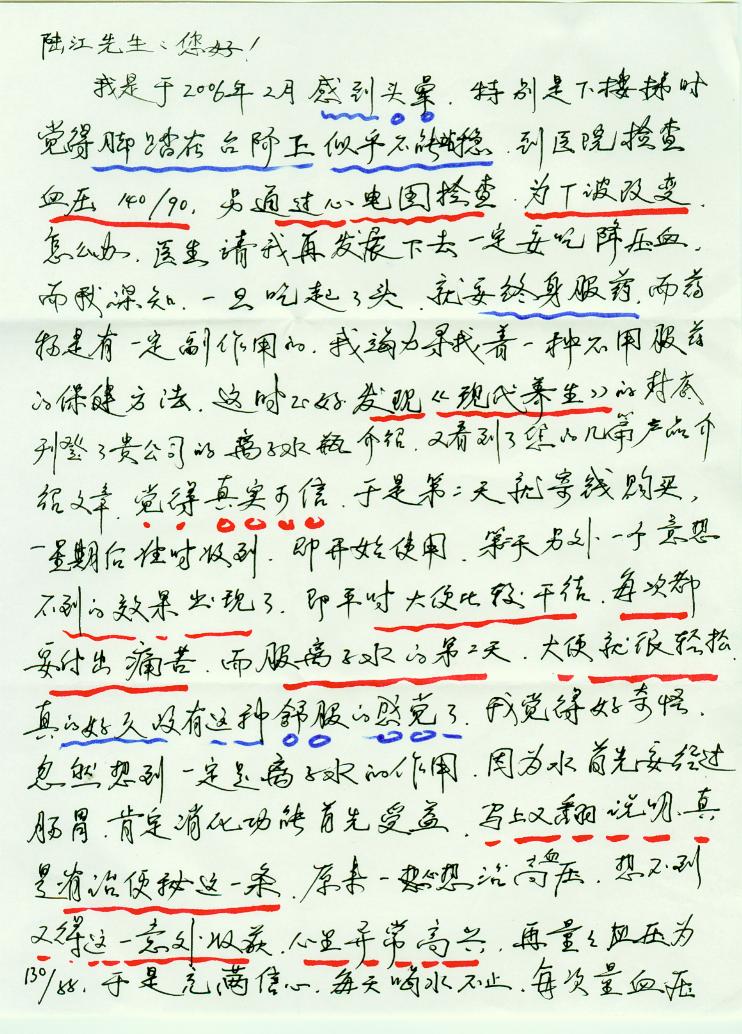 陆江先生：您好！
我是于2006年2月感到头晕．特别是下楼梯时
觉得脚踏在台阶上似乎不能站稳．到医院检查
血压140/90．另通过心电图检查．为T波改变．
怎么办．医生请我再发展下去一定要吃降压血．
而我深知．一旦吃起了头．就要终身服药．而药
物是有一定副作用的．我竭力寻找着一种不用服药
的保健方法．这时正好发现《现代养生》的封底
刊登了贵公司的离子水瓶介绍．又看到了您的几篇产品介
绍文章．觉得真实可信．于是第二天就寄钱购买，
一星期后准时收到．即开始使用．第天另外一个意想
不到的效果出现了．即平时大便比较干结．每次都
要付出痛苦．而服离子水的第2天．大便就很轻松．
真的好久没有这种舒服的感觉了．我觉得好奇怪．
忽然想到一定是离子水的作用．因为水首先要经过
肠胃．肯定消化功能首先受益．马上又翻说明．真
是有治便秘这一条．原来一想想治高血压．想不到
又得这一意外收获．心里异常高兴．再量量血压为
130/88．于是充满信心．每天喝水不止．每次量血压